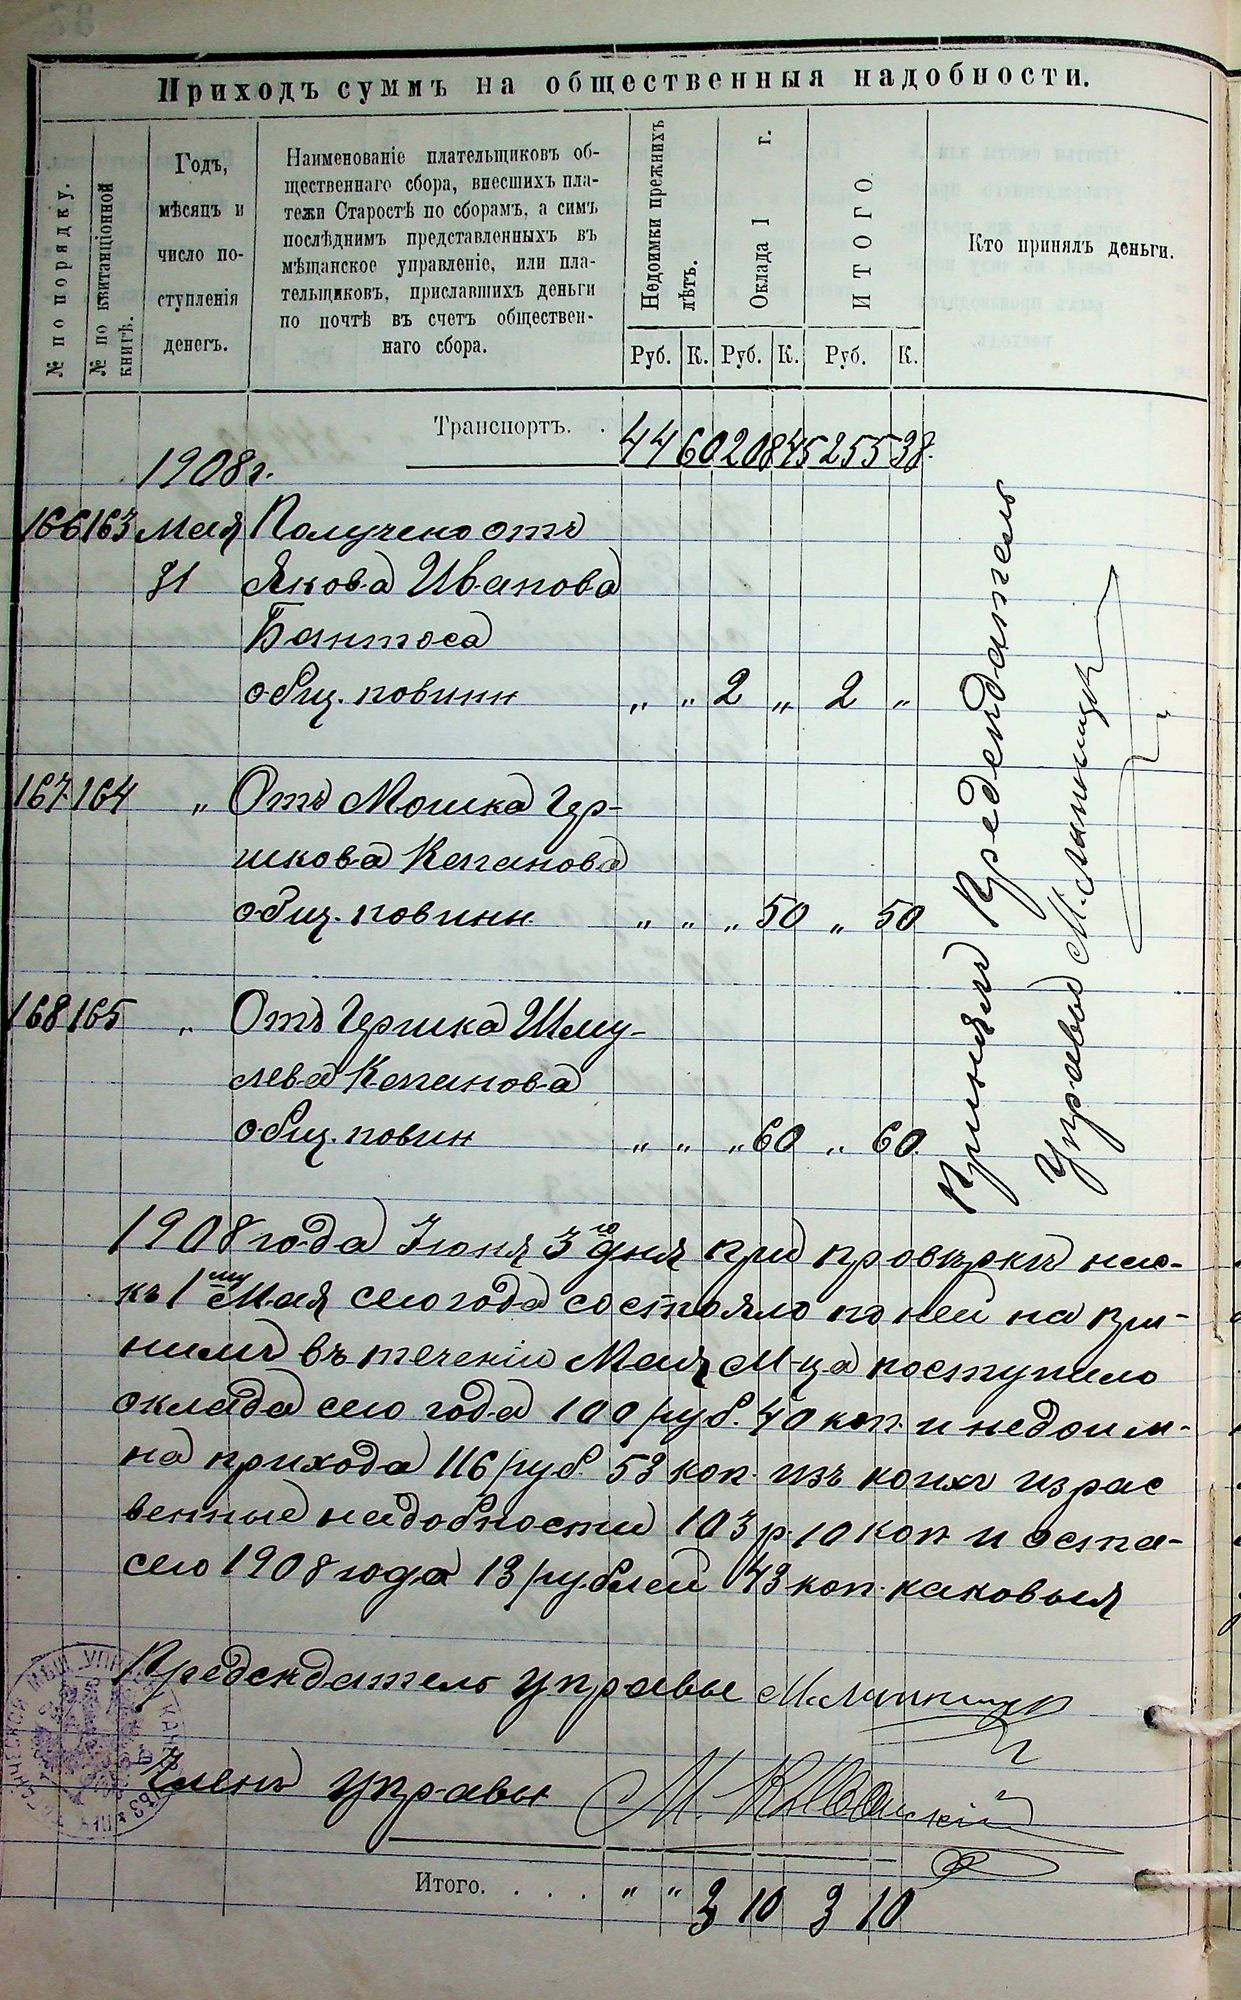 Приходъ суммъ на общественныя надобности.
№ по порядку.
№ по квитанціонной книгѣ.
Годъ,
мѣсяцъ и
число по-
ступленія
денегъ.
Наименованіе плательщиковъ об-
щественнаго сбора, внесшихъ пла-
тежи Старостѣ по сборамъ, а симъ
послѣднимъ представленныхъ въ
мѣщанское управленіе, или пла-
тельщиковъ, приславшихъ деньги
по почтѣ въ счетъ обществен-
наго сбора.
Недоимки прежнихъ лѣтъ.
Оклада 1 г.
ИТОГО
Кто принялъ деньги.
Руб. К. Руб. К. Руб. К.
Транспортъ. . 44 60 208 45 255 38.
1908 г.
166 163 Мая Получено отъ
31 Якова Иванова
Бантоса
общ. повинн „ „ 2 „ 2 „
167 164 „ Отъ Мошка Гер-
шкова Капанова
общ. повинн „ „ „ 50 „ 50
168 165 „ Отъ Гершка Шму-
лева Капанова
общ. повин „ „ „ 60 „ 60.
Принялъ Предсѣдатель
Управы
1908 года Іюня 3го дня при провѣркѣ нас-
къ 1му Мая сего года состояло по ней на при-
нимъ въ теченіи Мая М-ца поступило
оклада сего года 100 руб. 40 коп. и недоим-
на прихода 116 руб. 53 коп. изъ коихъ израс
венные надобности 103 р. 10 коп и оста-
сего 1908 года 13 рублей 43 коп. каковыя
Предсѣдатель управы
Членъ управы М.
Итого. . . . „ „ 3 10 3 10